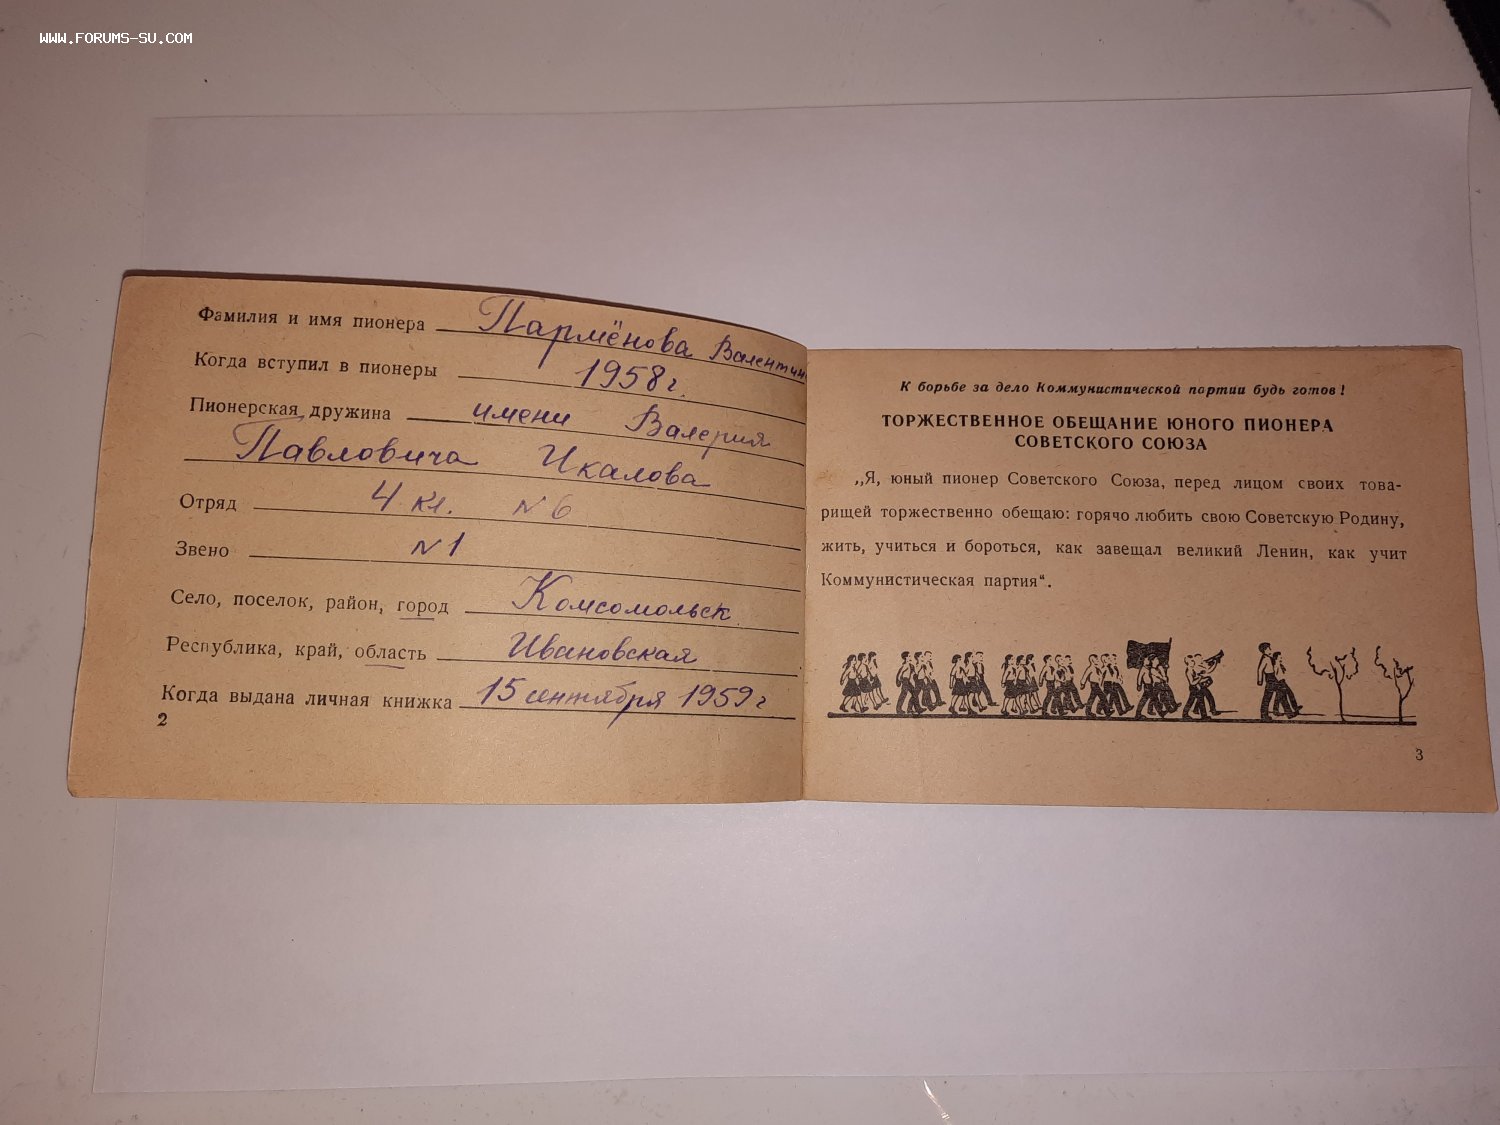 WWW.FORUMS-SU.COM
Фамилия и имя пионера Пармёнова Валентин
Когда вступил в пионеры 1958 г.
Пионерская дружина имени Валерия
Павловича Чкалова
Отряд 4 кл. №6
Звено №1
Село, поселок, район, город Комсомольск
Республика, край, область Ивановская
Когда выдана личная книжка 15 сентября 1959 г
2
К борьбе за дело Коммунистической партии будь готов!
ТОРЖЕСТВЕННОЕ ОБЕЩАНИЕ ЮНОГО ПИОНЕРА
СОВЕТСКОГО СОЮЗА
„Я, юный пионер Советского Союза, перед лицом своих това-
рищей торжественно обещаю: горячо любить свою Советскую Родину,
жить, учиться и бороться, как завещал великий Ленин, как учит
Коммунистическая партия“.
3